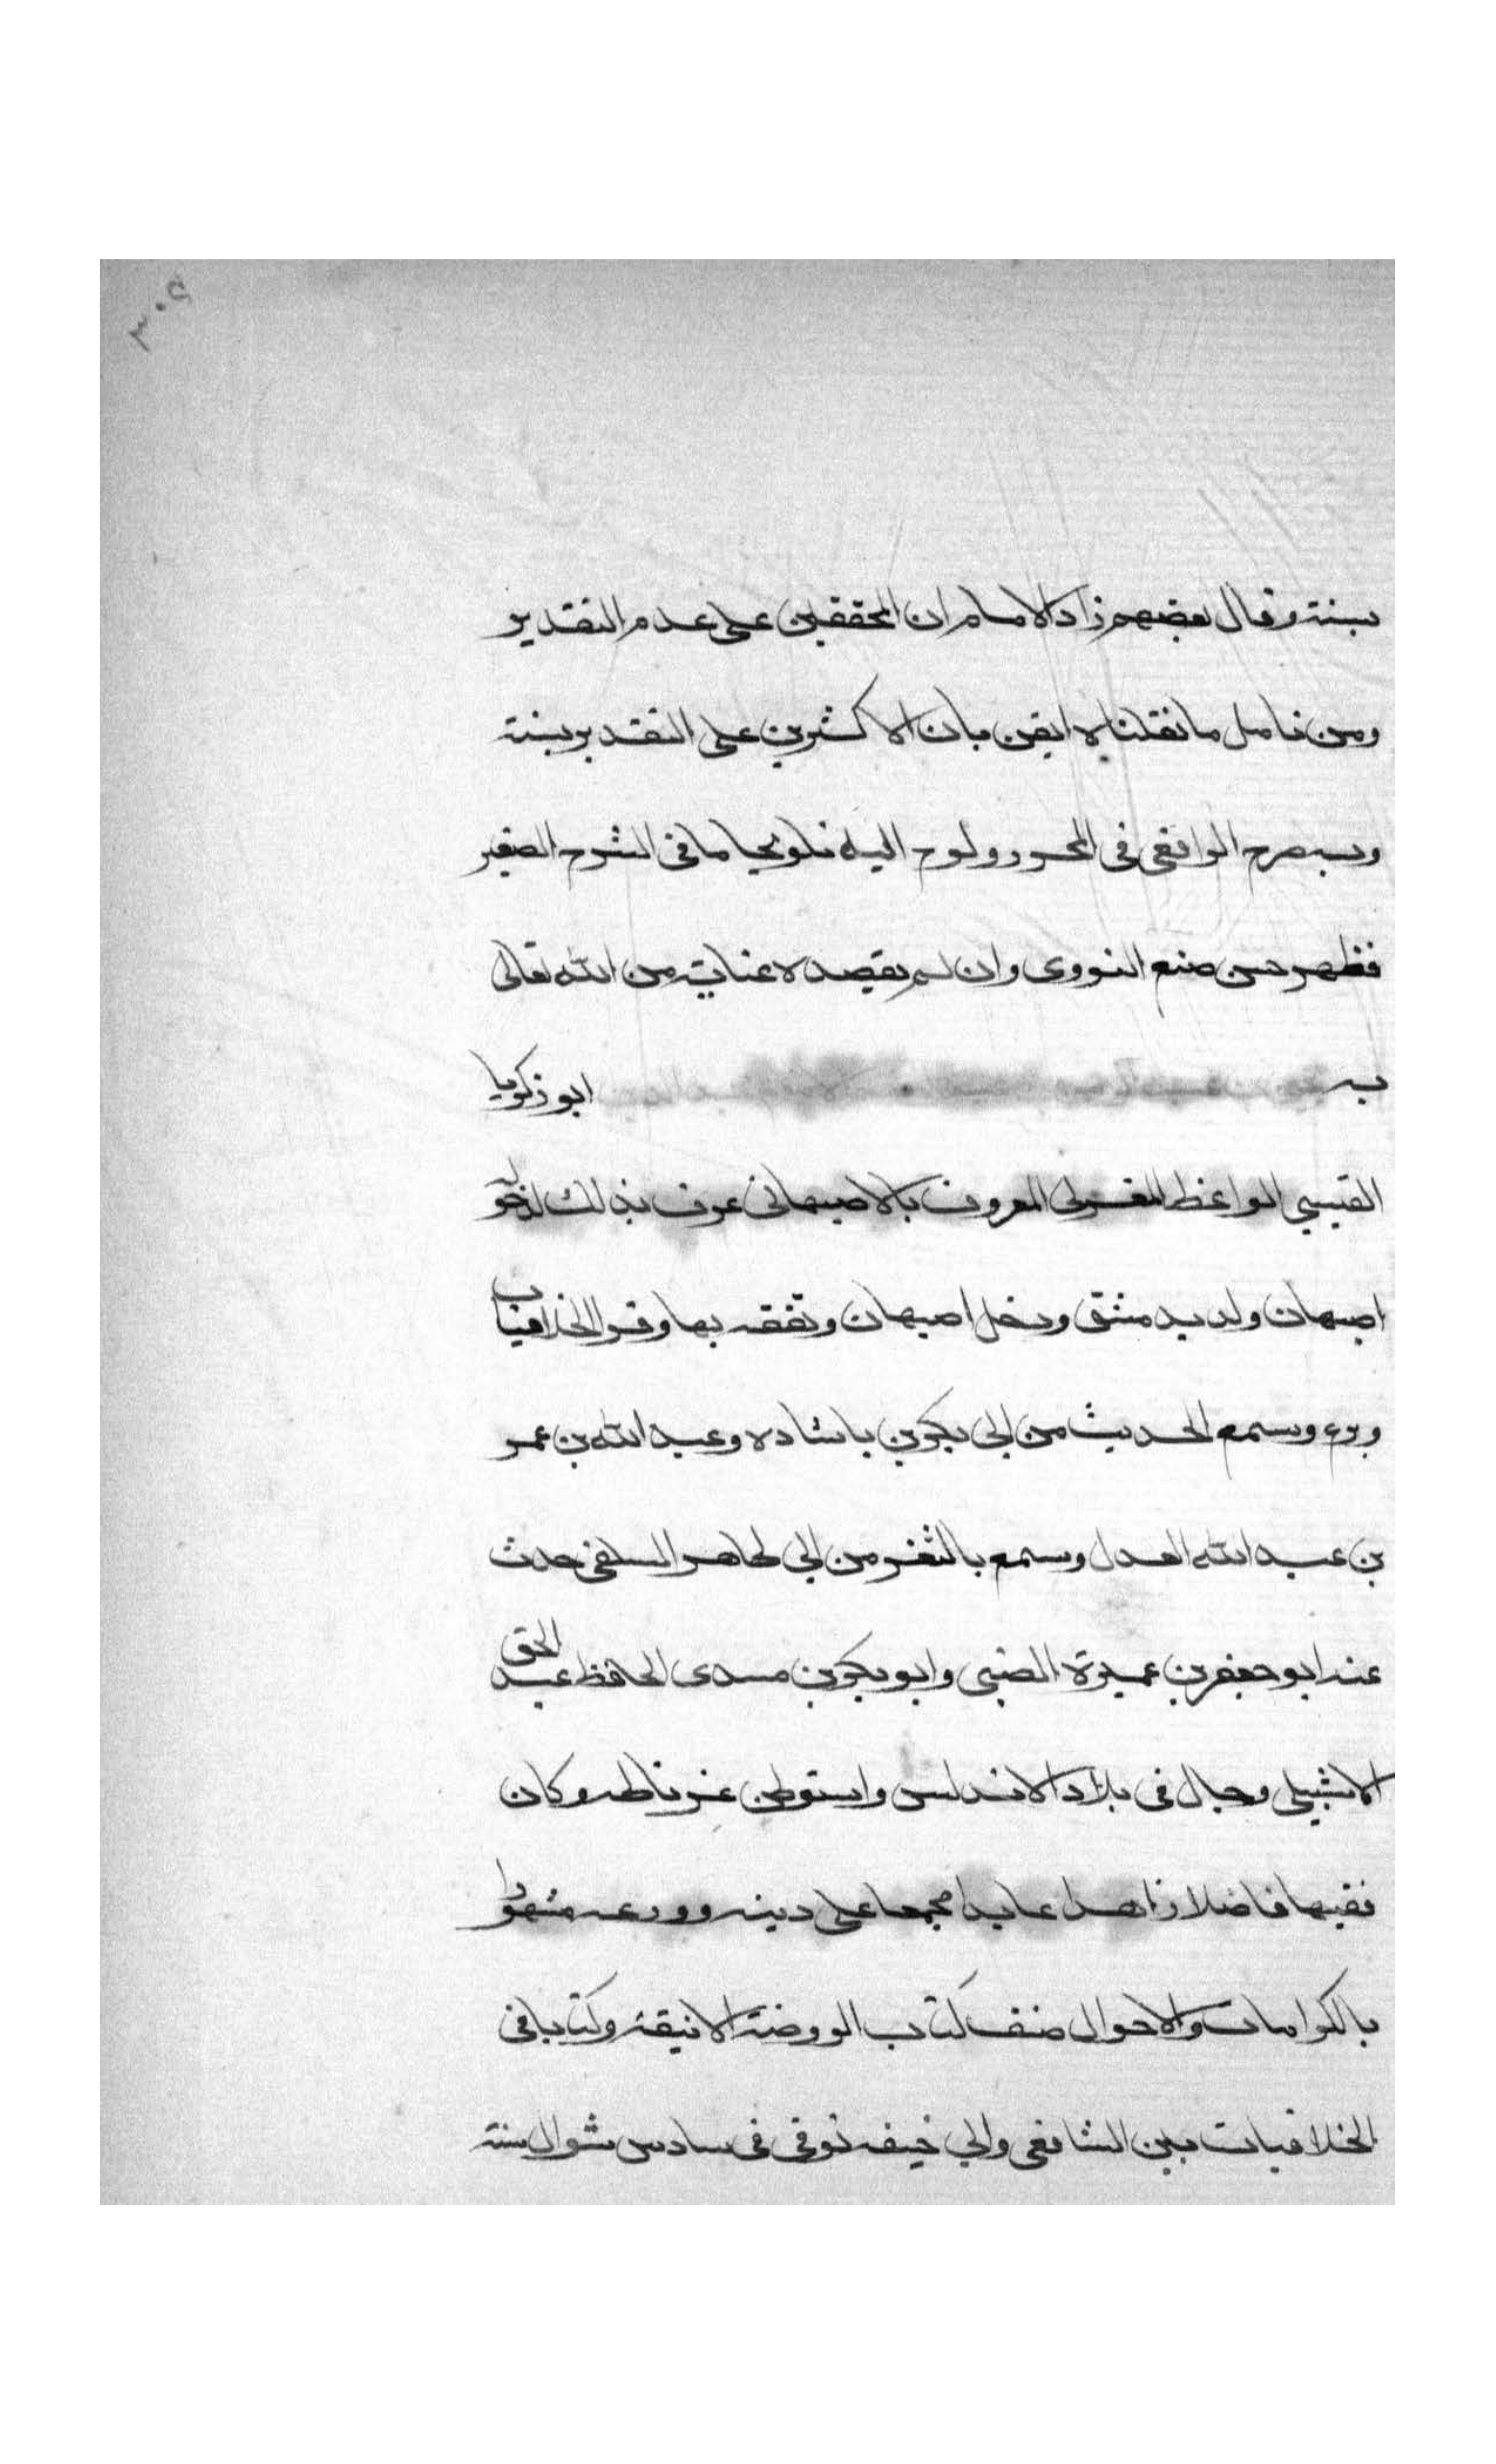 ٣٠٥
بسنة وقال بعضهم زاد الامام ان المحققين على عدم التقدير
ومن تامل ما نقلناه ايقن بان الاكثرين على التقدير بسنة
وبه صرح الرافعي في المحرر ولوح اليه تلويحا ما في الشرح الصغير
فظهر حسن صنع النووي وان لم يقصده عناية من الله تعالى
به ابو زكريا
القيسي الواعظ المعروف بالاصبهاني عرف بذلك لدخوله
اصبهان ولد بدمشق ودخل اصبهان وتفقه بها وقرا الخلافيات
وبرع وسمع الحديث من ابي بكر بن باشاده وعبد الله بن عمر
بن عبد الله العدل وسمع بالثغر من ابي طاهر السلفي حدث
عنه ابو جعفر بن عميرة الضبي وابو بكر بن مسدى الحافظ عبد الحق
الاشبيلي وجال في بلاد الاندلس واستوطن غرناطه وكان
فقيها فاضلا زاهدا عابدا مجمعا على دينه وورعه مشهورا
بالكرامات والاحوال صنف كتاب الروضة الانيقة وكتابا في
الخلافيات بين الشافعي وابي حنيفه توفي في سادس شوال سنة